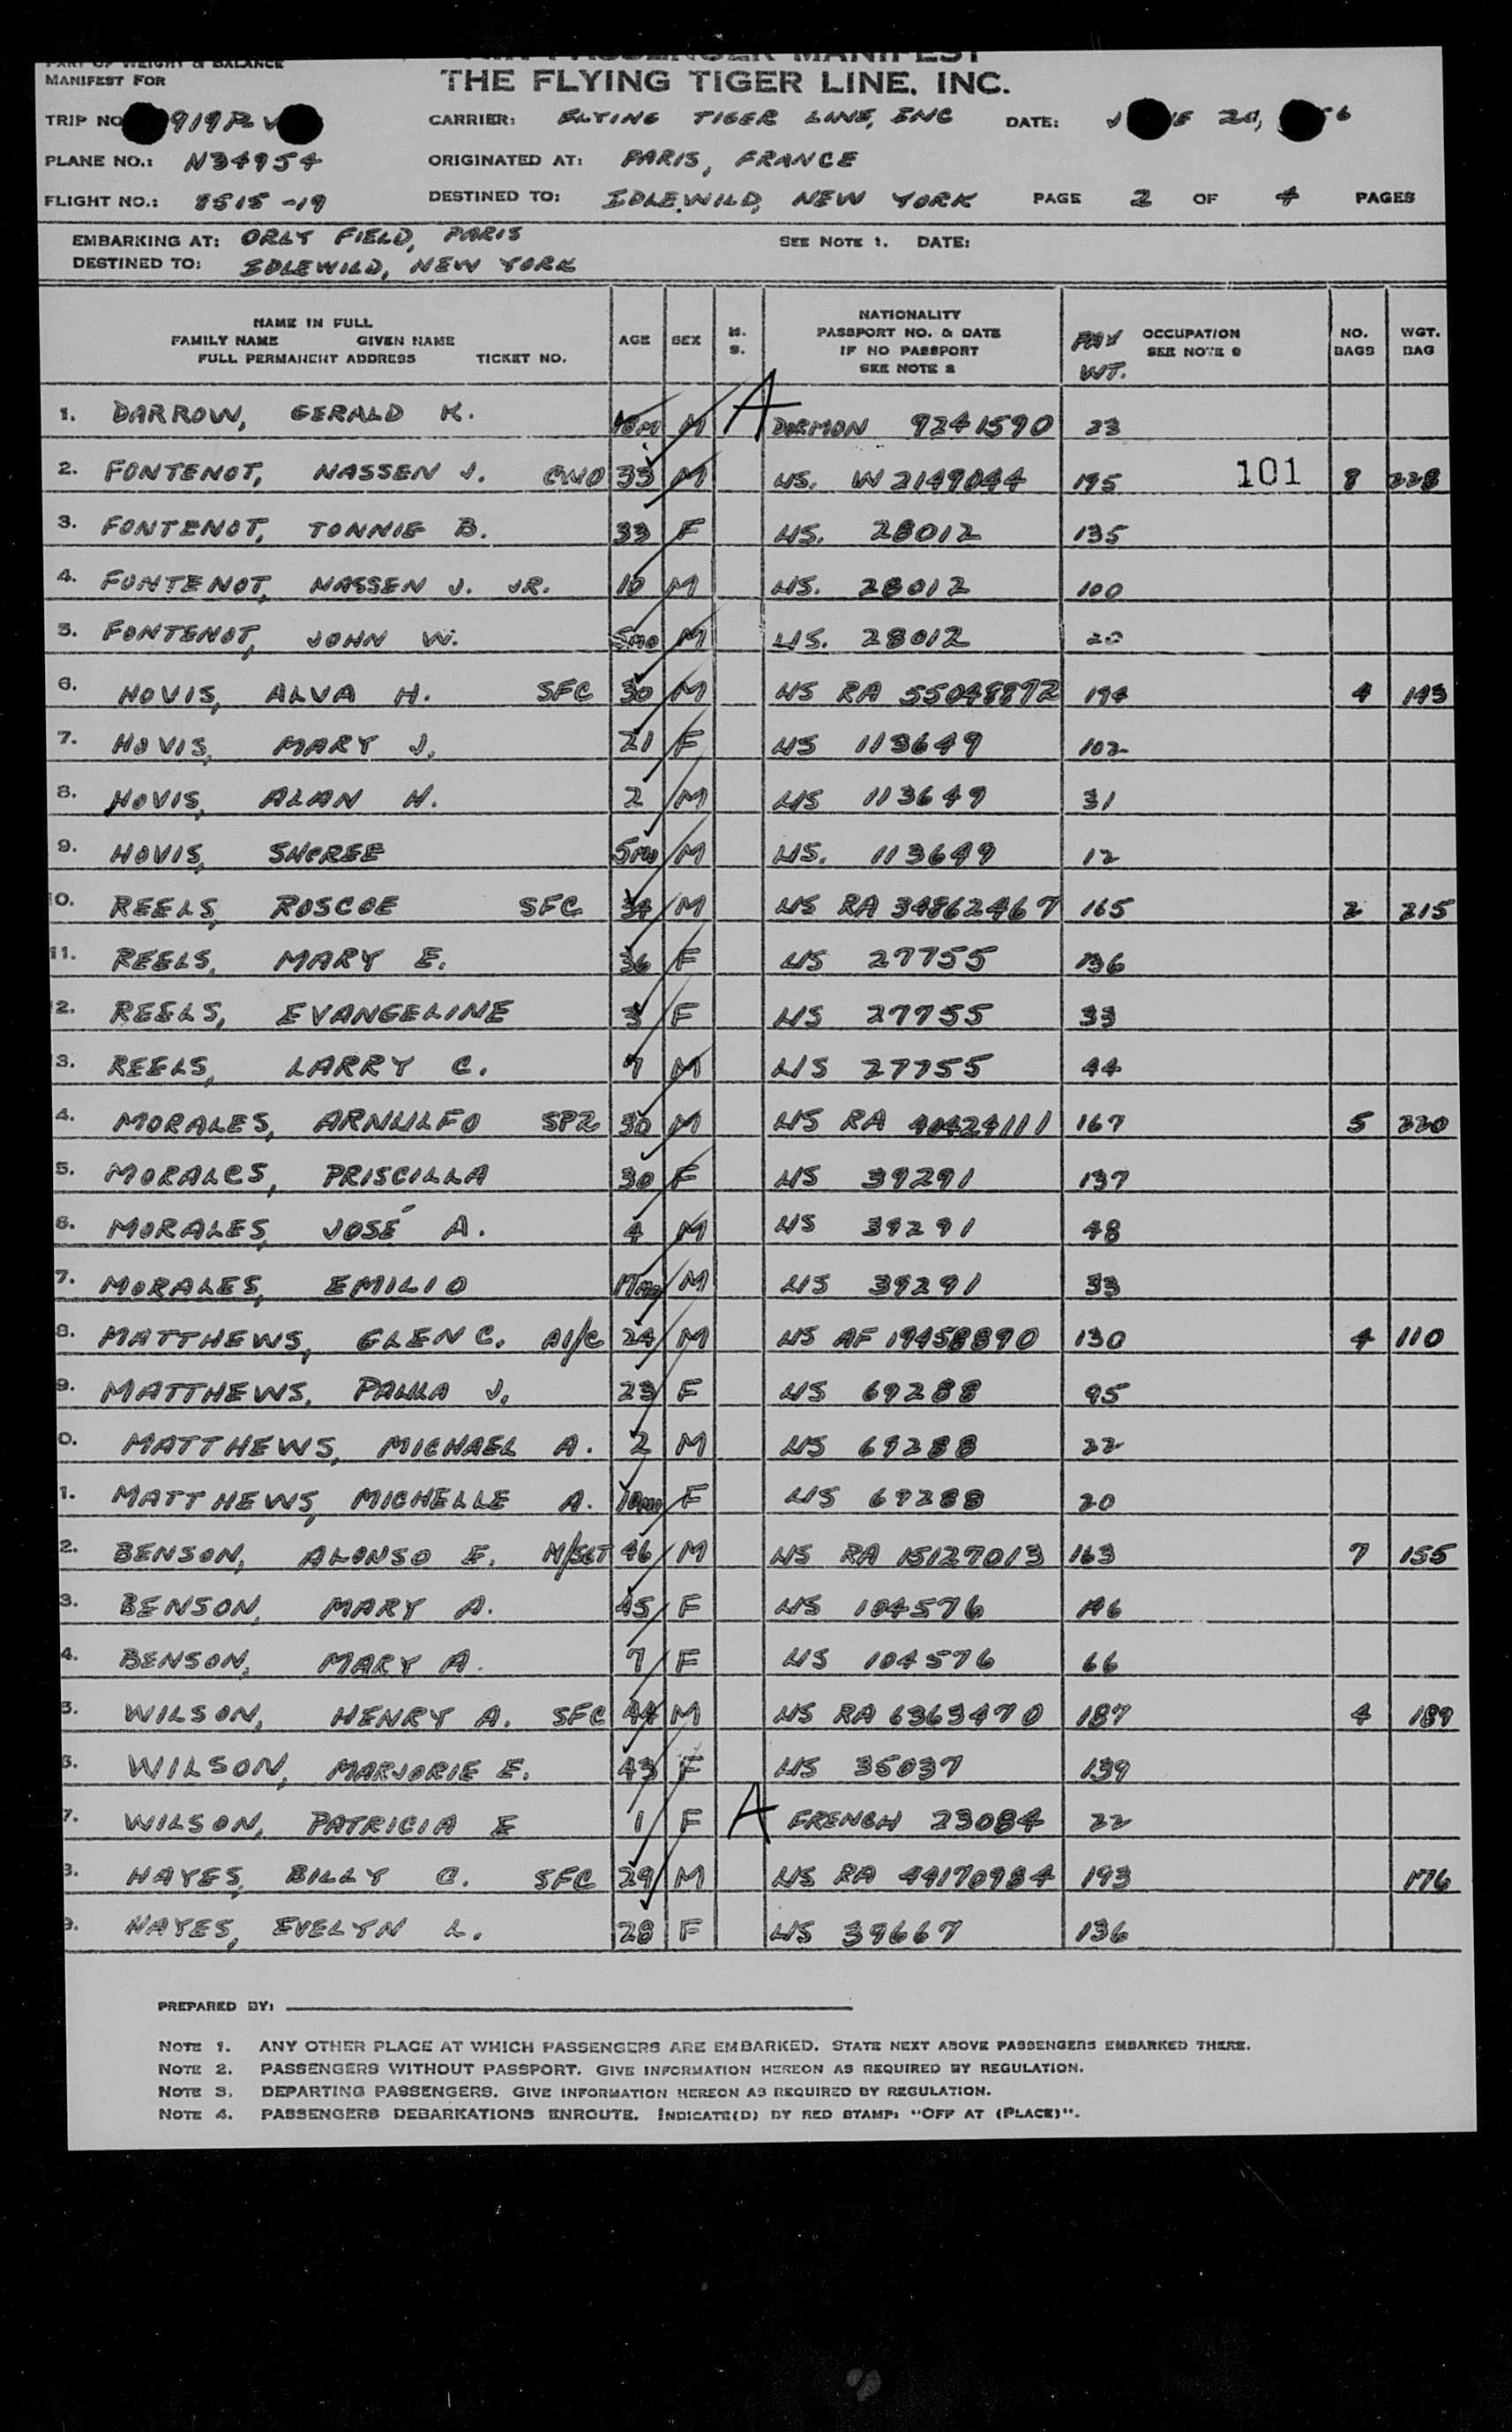 PART OF WEIGHT & BALANCE
MANIFEST FOR
AIR PASSENGER MANIFEST
THE FLYING TIGER LINE, INC.
TRIP NO 919 CARRIER: FLYING TIGER LINE, INC DATE: 56
PLANE NO.: N34954 ORIGINATED AT: PARIS, FRANCE
FLIGHT NO.: 8515-19 DESTINED TO: IDLEWILD, NEW YORK PAGE 2 OF 4 PAGES
EMBARKING AT: ORLY FIELD, PARIS SEE NOTE 1. DATE:
DESTINED TO: IDLEWILD, NEW YORK
NAME IN FULL
FAMILY NAME GIVEN NAME
FULL PERMANENT ADDRESS TICKET NO.
AGE SEX M. S.
NATIONALITY
PASSPORT NO. & DATE
IF NO PASSPORT
SEE NOTE 2
PAX WT.
OCCUPATION
SEE NOTE 3
NO. BAGS
WGT. BAG
1. DARROW, GERALD K. M A 9241590 23
2. FONTENOT, NASSEN J. CWO 33 M US. W 2149044 195 101 8 228
3. FONTENOT, TONNIE B. 33 F US. 28012 135
4. FONTENOT, NASSEN J. JR. 10 M US. 28012 100
5. FONTENOT, JOHN W. 5MO M US. 28012 20
6. HOVIS, ALVA H. SFC 30 M US RA 55048892 194 4 193
7. HOVIS, MARY J. 21 F US 113649 102
8. HOVIS, ALAN H. 2 M US 113649 31
9. HOVIS, SHEREE 5MO M US. 113649 12
10. REELS, ROSCOE SFC 34 M US RA 34862467 165 2 215
11. REELS, MARY E. 36 F US 27755 136
2. REELS, EVANGELINE 3 F US 27755 33
3. REELS, LARRY C. 7 M US 27755 44
4. MORALES, ARNULFO SP2 30 M US RA 40424111 167 5 220
5. MORALES, PRISCILLA 30 F US 39291 137
6. MORALES, JOSÉ A. 4 M US 39291 48
7. MORALES, EMILIO 17MO M US 39291 33
8. MATTHEWS, GLEN C. A1/C 24 M US AF 19458890 130 4 110
9. MATTHEWS, PAULA J. 23 F US 69288 95
0. MATTHEWS, MICHAEL A. 2 M US 69288 22
1. MATTHEWS, MICHELLE A. 10MO F US 69288 20
2. BENSON, ALONSO E. M/SGT 46 M US RA 15127013 163 7 155
3. BENSON, MARY A. 45 F US 104576 146
4. BENSON, MARY A. 7 F US 104576 66
5. WILSON, HENRY A. SFC 44 M US RA 6363470 187 4 189
6. WILSON, MARJORIE E. 43 F US 35037 139
7. WILSON, PATRICIA E 1 F A FRENCH 23084 22
8. HAYES, BILLY C. SFC 29 M US RA 44170984 193 176
9. HAYES, EVELYN L. 28 F US 39667 136
PREPARED BY:
NOTE 1. ANY OTHER PLACE AT WHICH PASSENGERS ARE EMBARKED. STATE NEXT ABOVE PASSENGERS EMBARKED THERE.
NOTE 2. PASSENGERS WITHOUT PASSPORT. GIVE INFORMATION HEREON AS REQUIRED BY REGULATION.
NOTE 3. DEPARTING PASSENGERS. GIVE INFORMATION HEREON AS REQUIRED BY REGULATION.
NOTE 4. PASSENGERS DEBARKATIONS ENROUTE. INDICATE(D) BY RED STAMP: "OFF AT (PLACE)".